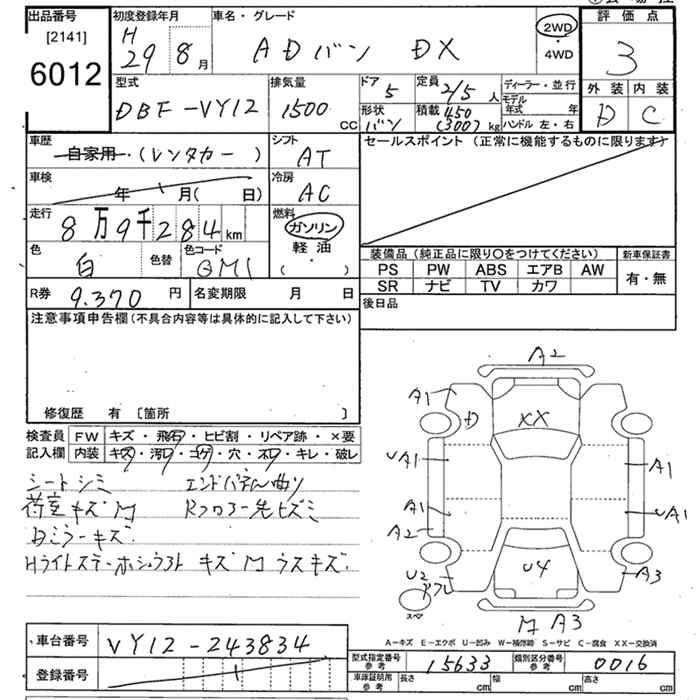 出品番号
[2141]
6012
初度登録年月
H
29 8 月
車名・グレード
ADバン DX
2WD
・
4WD
評価点
3
外装 内装
D C
型式
DBF-VY12
排気量
1500 CC
ドア 5
形状 バン
定員 2/5 人
積載 450 (300) kg
ディーラー・並行
モデル年式 年
ハンドル 左・右
車歴
自家用・(レンタカー)
車検
年 月( 日)
走行
8万9千284 km
色 白
色替
色コード QM1
シフト AT
冷房 AC
燃料
ガソリン
軽油
( ・ )
セールスポイント (正常に機能するものに限ります)
装備品 (純正品に限り〇をつけてください)
PS PW ABS エアB AW
SR ナビ TV カワ
新車保証書
有・無
後日品
R券 9.370 円
名変期限 月 日
注意事項申告欄(不具合内容等は具体的に記入して下さい)
修復歴 有 [箇所 ]
検査員記入欄
FW キズ・飛石・ヒビ割・リペア跡・×要
内装 キズ・汚れ・コゲ・穴・スレ・キレ・破レ
シートシミ エンドパネル曲り
荷室キズM Rフロアー先ヒズミ
Bミラーキズ
Hライトステー キズM ラスキズ
A2
A1
D
XX
UA1
A1
A1
UA1
A2
U2
A3
U4
スペア
M A3
A-キズ E-エクボ U-凹み W-補修跡 S-サビ C-腐食 XX-交換済
車台番号 VY12-243834
登録番号
型式指定番号 参考 15633
類別区分番号 参考 0016
車庫証明用 参考 長さ cm 幅 cm 高さ cm